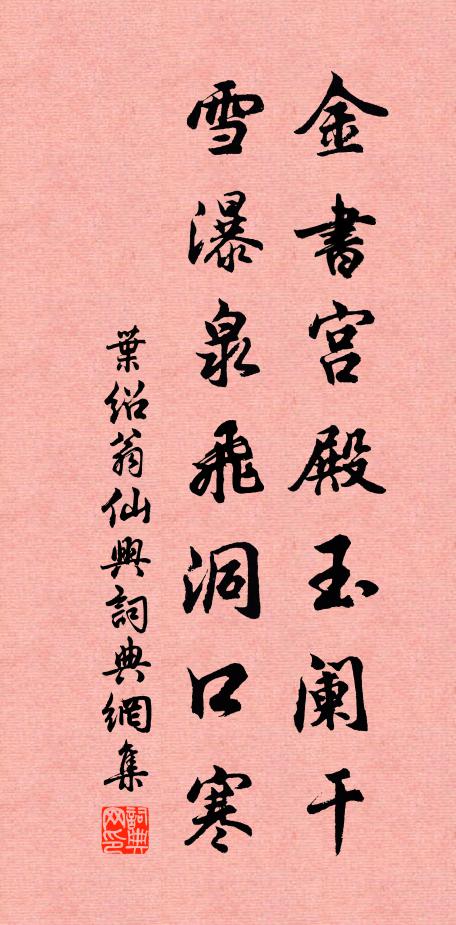 金書宫殿玉阑干
雪瀑泉飛洞口寒
葉紹翁仙興詞典網集
詞典网印